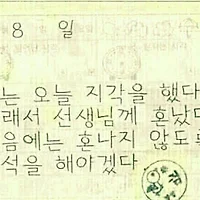 8 일
는 오늘 지각을 했다
래서 선생님께 혼났다
음에는 혼나지 않도록
석을 해야겠다